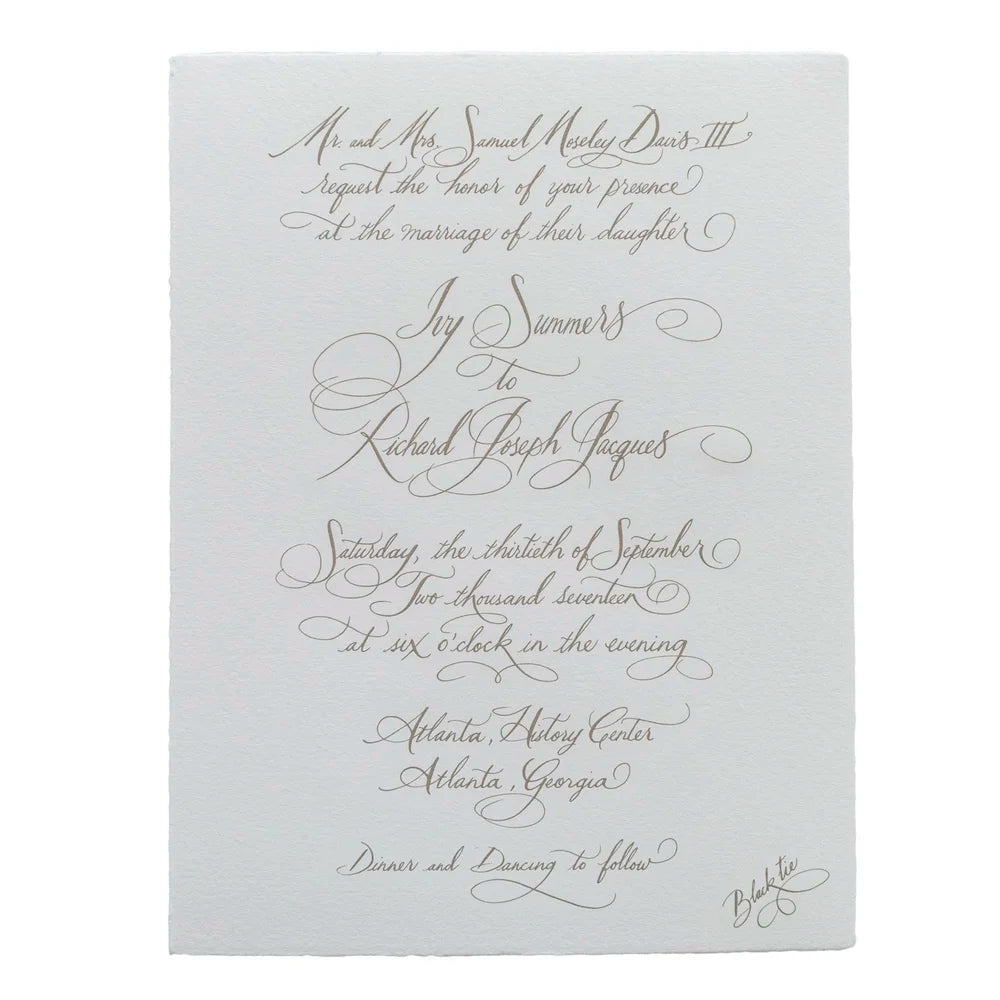 Mr. and Mrs. Samuel Moseley Davis III
request the honor of your presence
at the marriage of their daughter
Ivy Summers
to
Richard Joseph Jacques
Saturday, the thirtieth of September
Two thousand seventeen
at six o'clock in the evening
Atlanta, History Center
Atlanta, Georgia
Dinner and Dancing to follow
Black tie